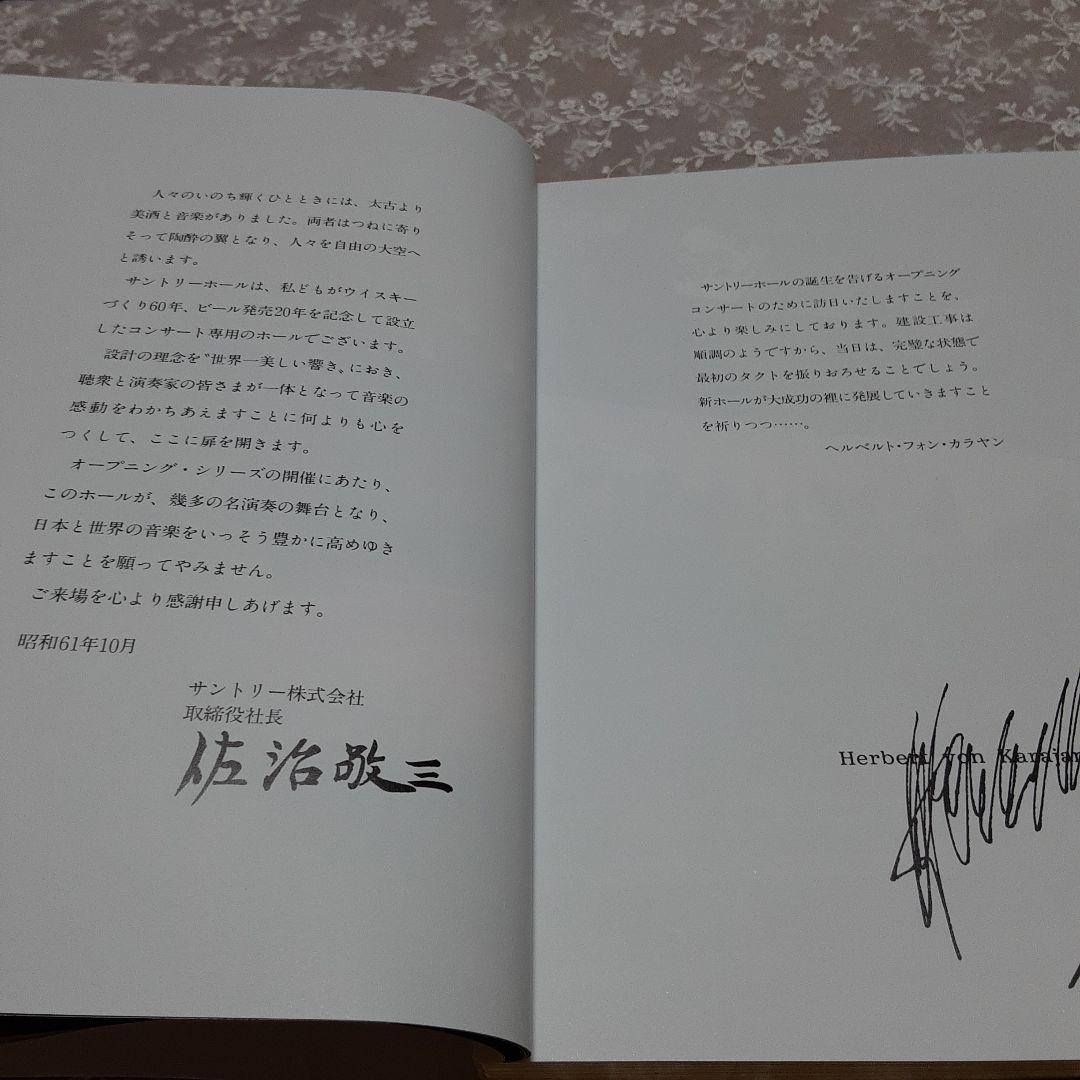 人々のいのち輝くひとときには、太古より
美酒と音楽がありました。両者はつねに寄り
そって陶酔の翼となり、人々を自由の大空へ
と誘います。
サントリーホールは、私どもがウイスキー
づくり60年、ビール発売20年を記念して設立
したコンサート専用のホールでございます。
設計の理念を〝世界一美しい響き〟におき、
聴衆と演奏家の皆さまが一体となって音楽の
感動をわかちあえますことに何よりも心を
つくして、ここに扉を開きます。
オープニング・シリーズの開催にあたり、
このホールが、幾多の名演奏の舞台となり、
日本と世界の音楽をいっそう豊かに高めゆき
ますことを願ってやみません。
ご来場を心より感謝申しあげます。
昭和61年10月
サントリー株式会社
取締役社長
佐治敬三
サントリーホールの誕生を告げるオープニング
コンサートのために訪日いたしますことを、
心より楽しみにしております。建設工事は
順調のようですから、当日は、完璧な状態で
最初のタクトを振りおろせることでしょう。
新ホールが大成功の裡に発展していきますこと
を祈りつつ……。
ヘルベルト・フォン・カラヤン
Herbert von Karajan